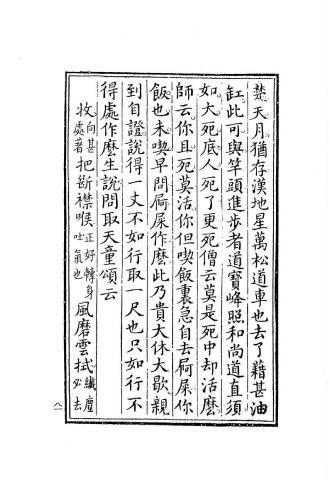 楚天月猶存漢地星萬松道車也去了藉甚油
缸此可與竿頭進步者道寶峰照和尚道直須
如大死底人死了更死僧云莫是死中却活麽
師云你且死莫活你但喫飯裏急自去屙屎你
飯也未喫早問屙屎作麽此乃貴大休大歇親
到自證說得一丈不如行取一尺也只如行不
得處作麽生說問取天童頌云
收向甚處著把斷襟喉正好轉身吐氣也風磨雲拭纖塵必去
八